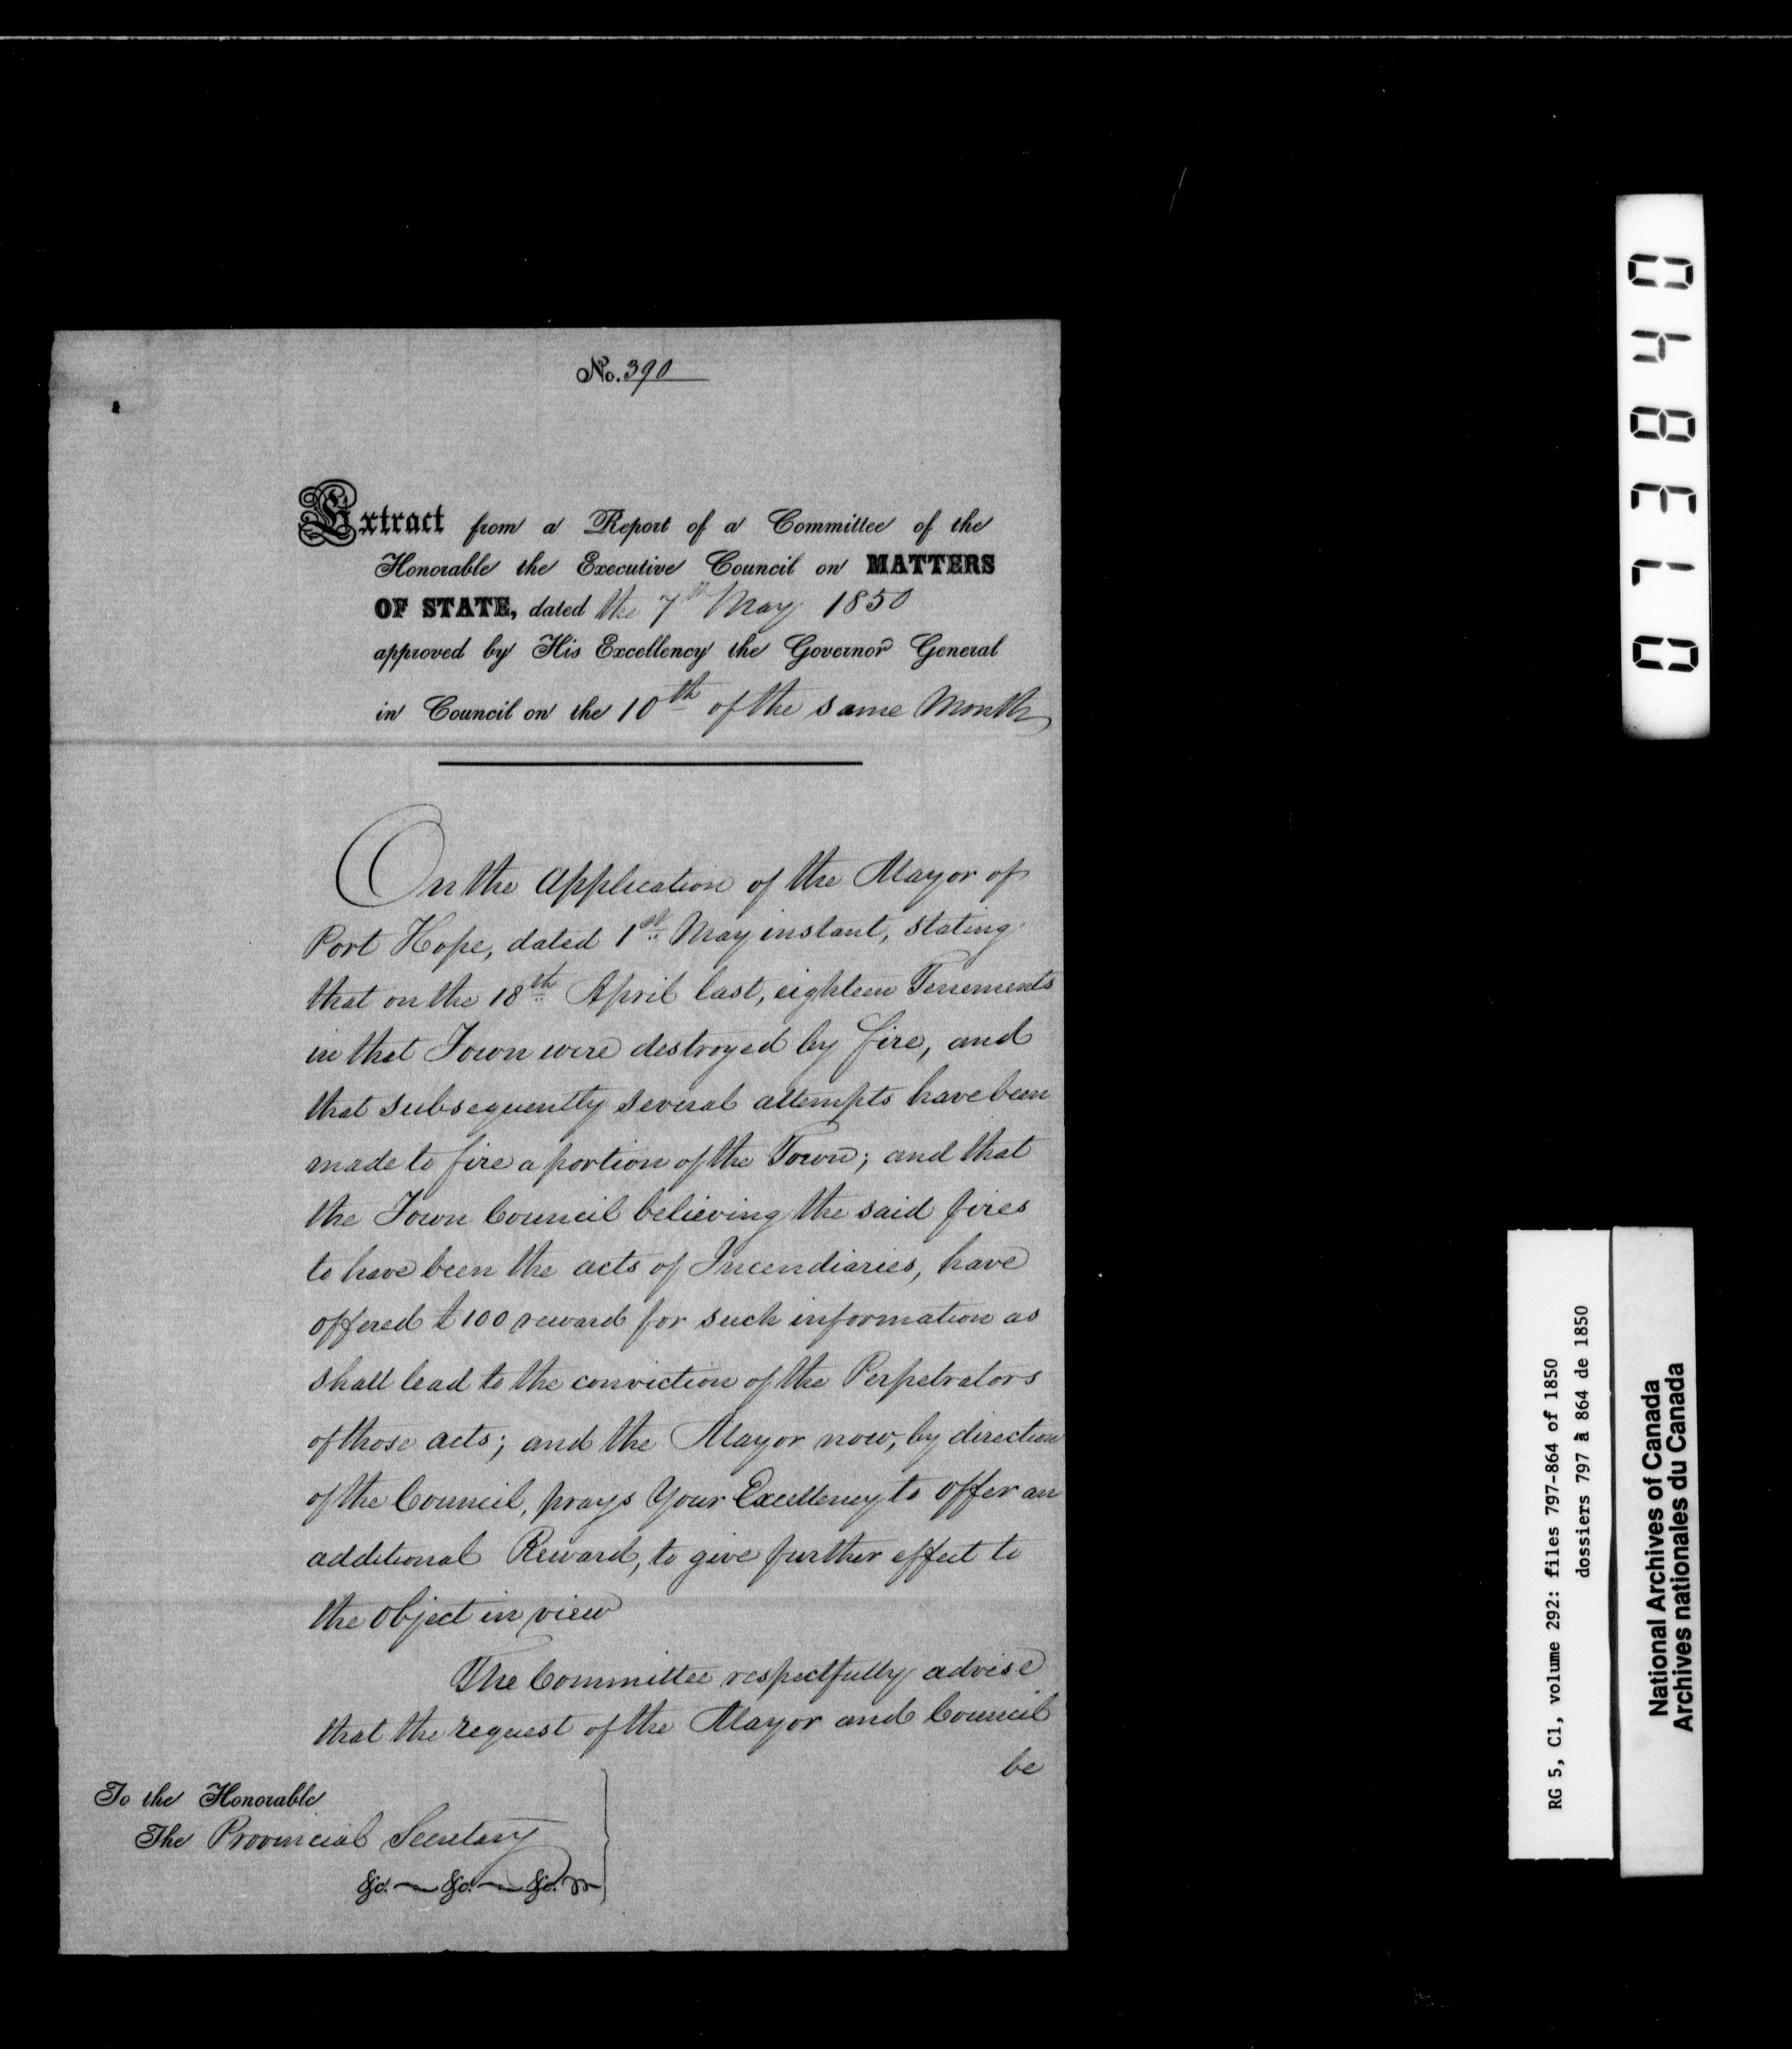 No. 390
Extract from a Report of a Committee of the
Honorable the Executive Council on MATTERS
OF STATE, dated the 7th May 1850
approved by His Excellency the Governor General
in Council on the 10th of the same Month
On the Application of the Mayor of
Port Hope, dated 1st May instant, stating
that on the 18th April last, eighteen Tenements
in that Town were destroyed by fire, and
that subsequently several attempts have been
made to fire a portion of the Town; and that
the Town Council believing the said fires
to have been the acts of Incendiaries, have
offered £100 reward for such information as
shall lead to the conviction of the Perpetrators
of those acts; and the Mayor now, by direction
of the Council, prays Your Excellency to offer an
additional Reward, to give further effect to
the object in view
The Committee respectfully advise
that the request of the Mayor and Council
be
To the Honorable
The Provincial Secretary
&c. &c. &c.
0713840
RG 5, C1, volume 292: files 797-864 of 1850
dossiers 797 à 864 de 1850
National Archives of Canada
Archives nationales du Canada